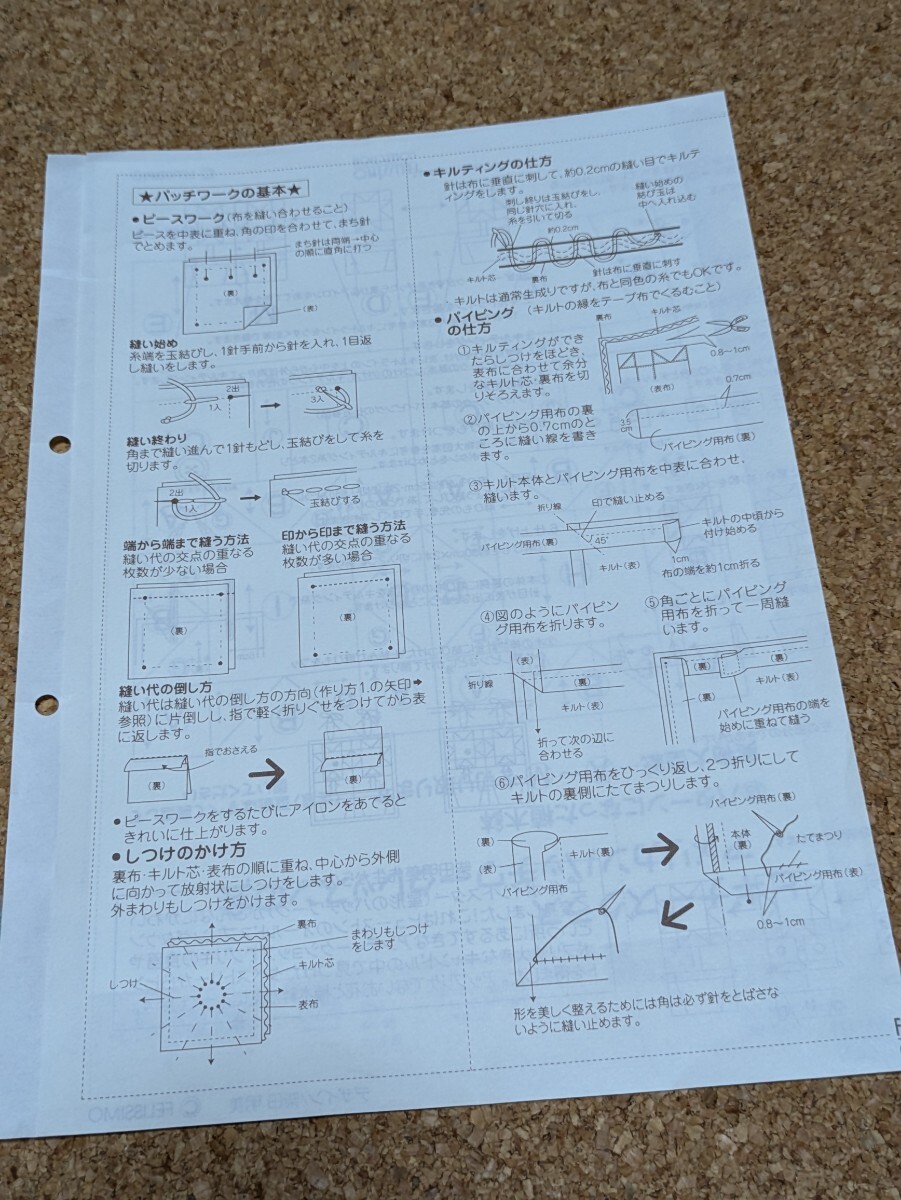 ★パッチワークの基本★
●ピースワーク(布を縫い合わせること)
ピースを中表に重ね、角の印を合わせて、まち針
でとめます。
まち針は両端→中心
の順に直角に打つ
(裏)
(表)
縫い始め
糸端を玉結びし、1針手前から針を入れ、1目返
し縫いをします。
2出
1入
3入
縫い終わり
角まで縫い進んで1針もどし、玉結びをして糸を
切ります。
2出
1入
玉結びする
端から端まで縫う方法
縫い代の交点の重なる
枚数が少ない場合
(裏)
印から印まで縫う方法
縫い代の交点の重なる
枚数が多い場合
(裏)
縫い代の倒し方
縫い代は縫い代の倒し方の方向(作り方1.の矢印➡
参照)に片倒しし、指で軽く折りぐせをつけてから表
に返します。
指でおさえる
(裏)
(裏)
●ピースワークをするたびにアイロンをあてると
きれいに仕上がります。
●しつけのかけ方
裏布・キルト芯・表布の順に重ね、中心から外側
に向かって放射状にしつけをします。
外まわりもしつけをかけます。
裏布
まわりもしつけ
をします
キルト芯
しつけ
表布
●キルティングの仕方
針は布に垂直に刺して、約0.2cmの縫い目でキルテ
ィングをします。
刺し終りは玉結びをし、
同じ針穴に入れ、
糸を引いて切る
縫い始めの
結び玉は
中へ入れ込む
約0.2cm
キルト芯
裏布
針は布に垂直に刺す
・キルトは通常生成りですが、布と同色の糸でもOKです。
●パイピング (キルトの縁をテープ布でくるむこと)
の仕方
①キルティングができ
たらしつけをほどき、
表布に合わせて余分
なキルト芯・裏布を切
りそろえます。
裏布
キルト芯
0.8〜1cm
(表布)
②パイピング用布の裏
の上から0.7cmのと
ころに縫い線を書き
ます。
0.7cm
3.5
cm
パイピング用布(裏)
③キルト本体とパイピング用布を中表に合わせ、
縫います。
折り線
印で縫い止める
パイピング用布(裏)
45°
キルト(表)
キルトの中頃から
付け始める
1cm
布の端を約1cm折る
④図のようにパイピン
グ用布を折ります。
(表)
(裏)
折り線
キルト(表)
折って次の辺に
合わせる
⑤角ごとにパイピング
用布を折って一周縫
います。
(裏)
(裏)
キルト(表)
(裏)
パイピング用布の端を
始めに重ねて縫う
⑥パイピング用布をひっくり返し、2つ折りにして
キルトの裏側にたてまつりします。
(裏)
(表)
キルト(裏)
パイピング用布
パイピング用布(裏)
本体
(裏)
たてまつり
パイピング用布(表)
0.8〜1cm
形を美しく整えるためには角は必ず針をとばさな
いように縫い止めます。